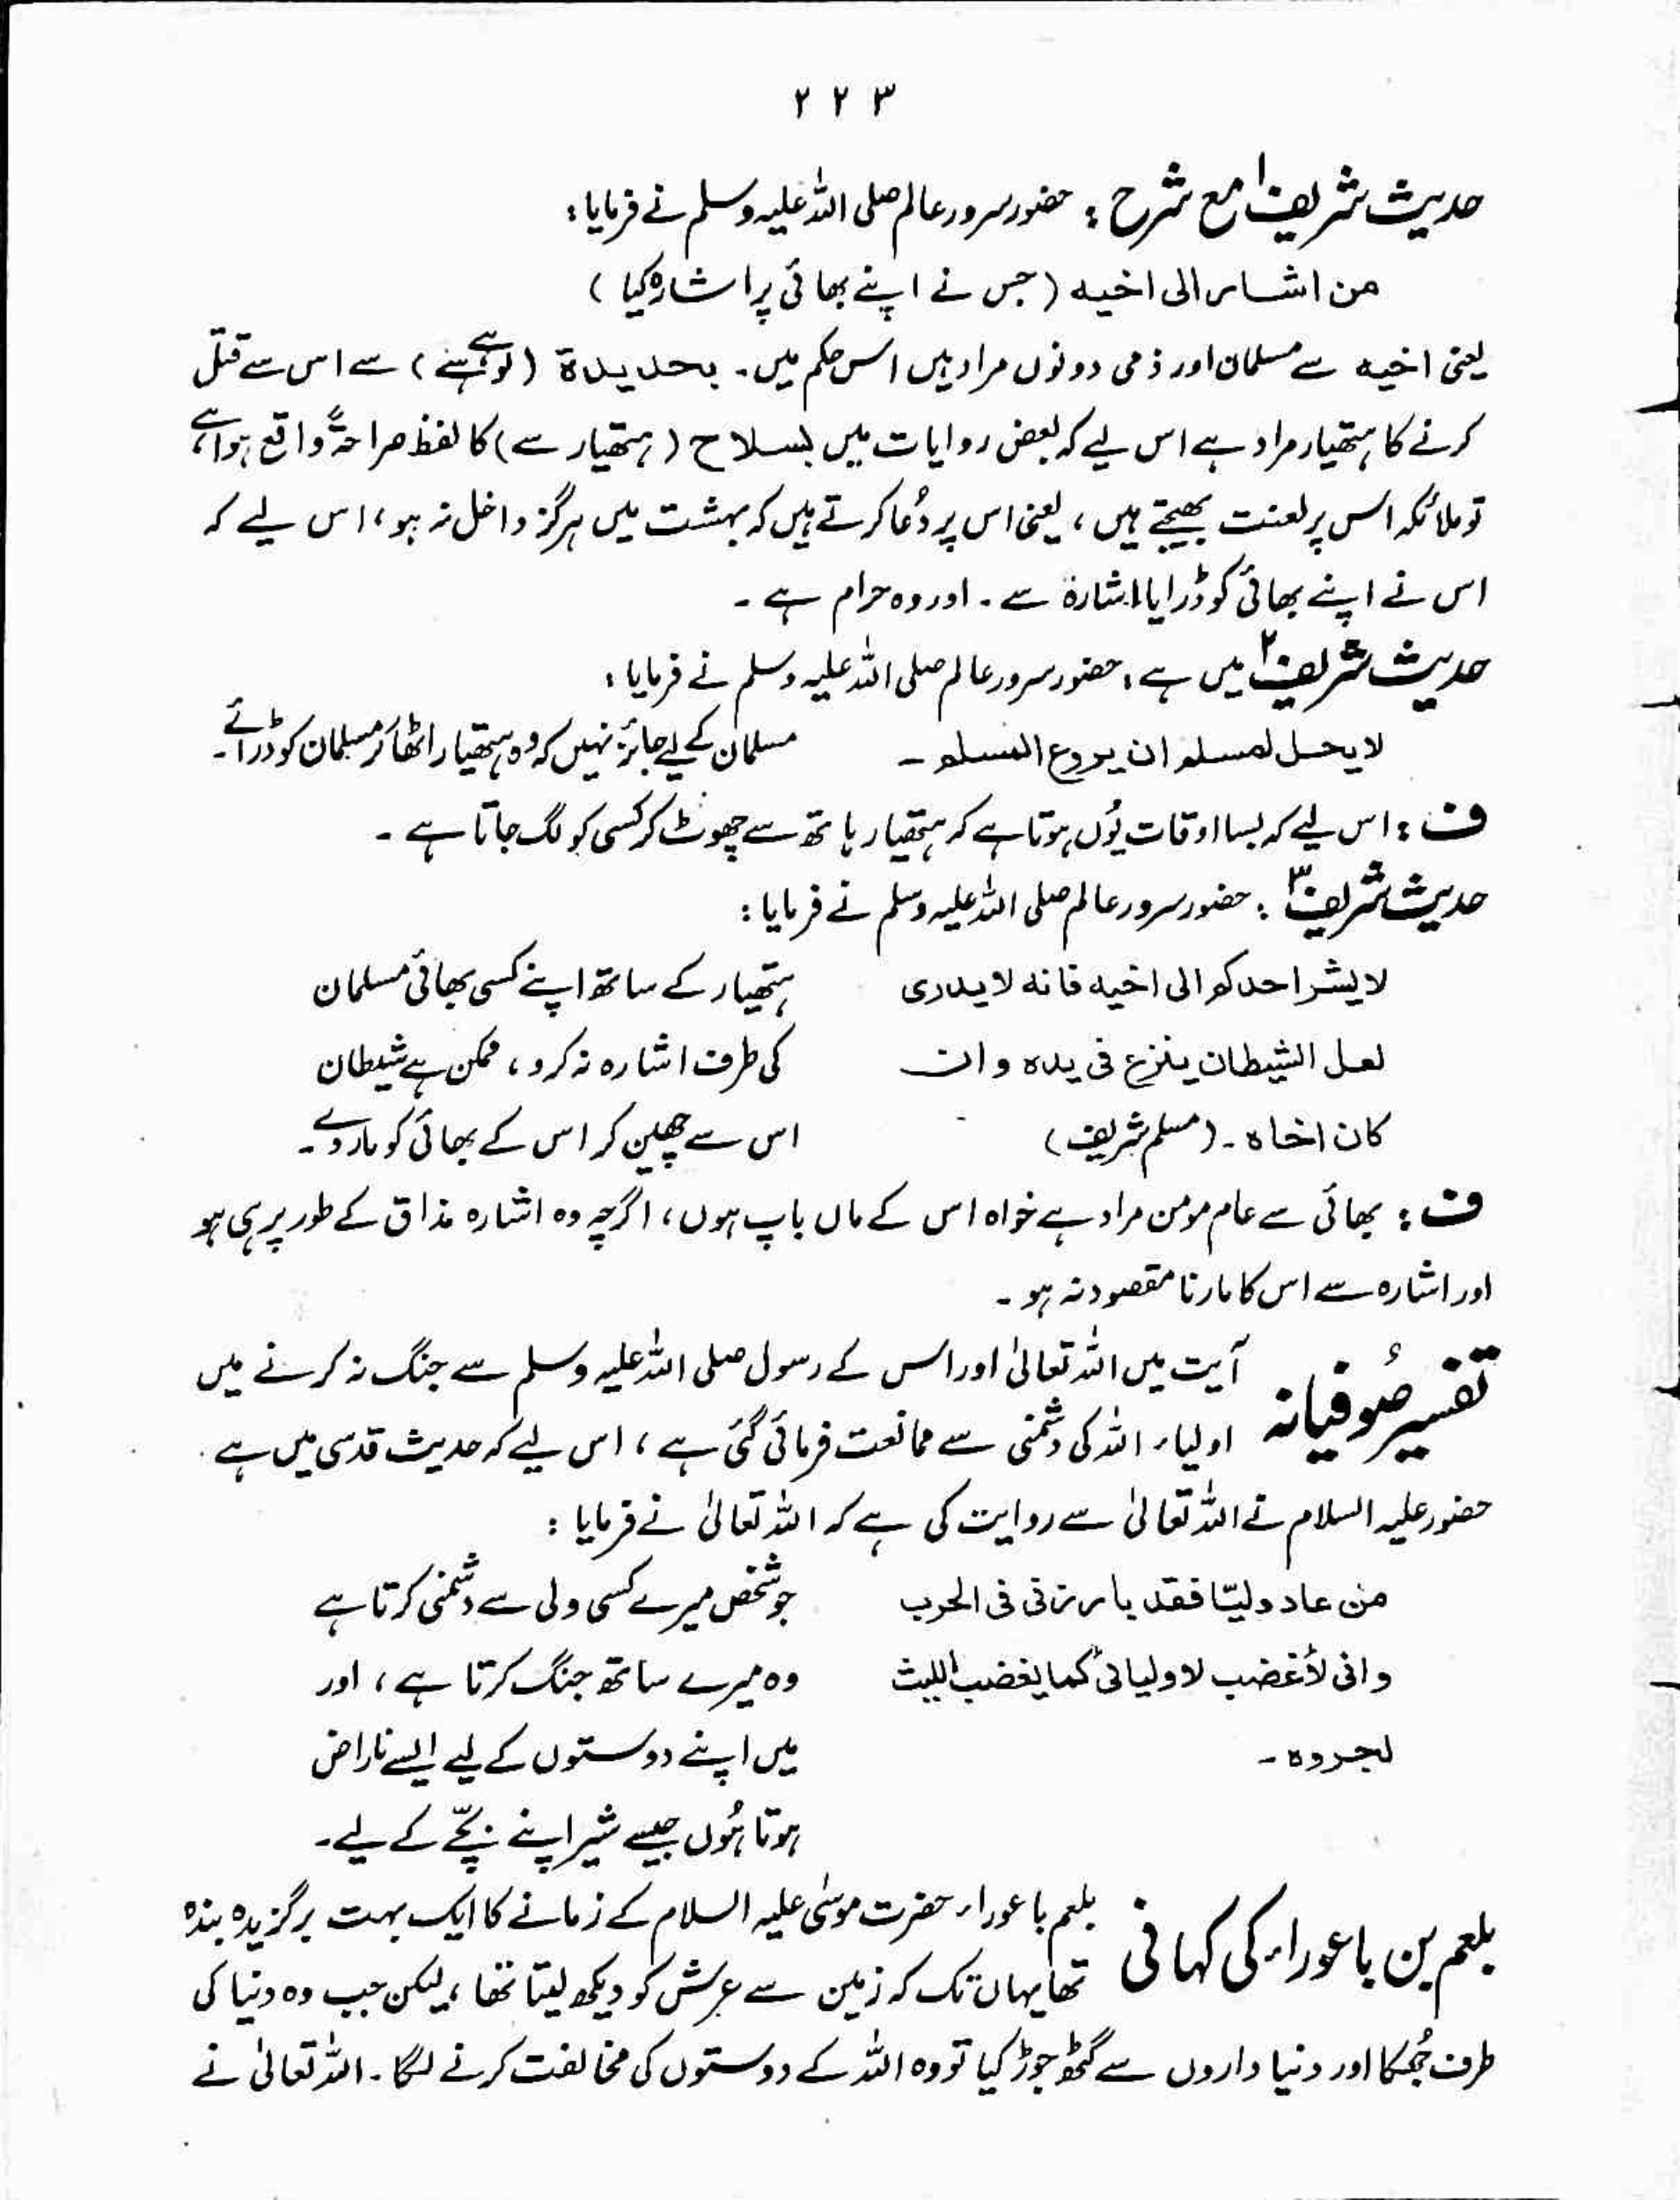 ۲۲۳
حدیث شریف۱ مع شرح : حضور سرور عالم صلی اللہ علیہ وسلم نے فرمایا :
من اشار الی اخیہ (جس نے اپنے بھائی پر اشارہ کیا)
یعنی اخیہ سے مسلمان اور ذمی دونوں مراد ہیں اس حکم میں۔ بحدیدة (لوہے سے) سے اس سے قتل
کرنے کا ہتھیار مراد ہے اس لیے کہ بعض روایات میں بسلاح (ہتھیار سے) کا لفظ صراحۃً واقع ہوا ہے،
تو ملائکہ اس پر لعنت بھیجتے ہیں، یعنی اس پر دُعا کرتے ہیں کہ بہشت میں ہرگز داخل نہ ہو، اس لیے کہ
اس نے اپنے بھائی کو ڈرایا اشارۃ سے۔ اور وہ حرام ہے۔
حدیث شریف۲ میں ہے : حضور سرور عالم صلی اللہ علیہ وسلم نے فرمایا :
لا یحل لمسلم ان یروع المسلم۔ مسلمان کے لیے جائز نہیں کہ وہ ہتھیار اٹھا کر مسلمان کو ڈرائے۔
ف : اس لیے کہ بسا اوقات یُوں ہوتا ہے کہ ہتھیار ہاتھ سے چھوٹ کر کسی کو لگ جاتا ہے۔
حدیث شریف۳ : حضور سرور عالم صلی اللہ علیہ وسلم نے فرمایا :
لا یشر احدکم الی اخیہ فانہ لا یدری ہتھیار کے ساتھ اپنے کسی بھائی مسلمان
لعل الشیطان ینزع فی یدہ وان کی طرف اشارہ نہ کرو، ممکن ہے شیطان
کان اخاہ۔ (مسلم شریف) اس سے چھین کر اس کے بھائی کو مار دے۔
ف : بھائی سے عام مومن مراد ہے خواہ اس کے ماں باپ ہوں، اگرچہ وہ اشارہ مذاق کے طور پر ہی ہو
اور اشارہ سے اس کا مارنا مقصود نہ ہو۔
تفسیر صُوفیانہ آیت میں اللہ تعالیٰ اور اس کے رسول صلی اللہ علیہ وسلم سے جنگ نہ کرنے میں
اولیاء اللہ کی دشمنی سے ممانعت فرمائی گئی ہے، اس لیے کہ حدیث قدسی میں ہے۔
حضور علیہ السلام نے اللہ تعالیٰ سے روایت کی ہے کہ اللہ تعالیٰ نے فرمایا :
من عاد ولیّا فقد بارزنی فی الحرب جو شخص میرے کسی ولی سے دشمنی کرتا ہے
وانی لأغضب لاولیائی کما یغضب اللیث وہ میرے ساتھ جنگ کرتا ہے، اور
لجروہ۔ میں اپنے دوستوں کے لیے ایسے ناراض
ہوتا ہُوں جیسے شیر اپنے بچّے کے لیے۔
بلعم بن باعوراء کی کہانی بلعم باعوراء حضرت موسٰی علیہ السلام کے زمانے کا ایک بہت برگزیدہ بندہ
تھا یہاں تک کہ زمین سے عرش کو دیکھ لیتا تھا، لیکن جب وہ دنیا کی
طرف جُھکا اور دنیا داروں سے گٹھ جوڑ کیا تو وہ اللہ کے دوستوں کی مخالفت کرنے لگا۔ اللہ تعالیٰ نے